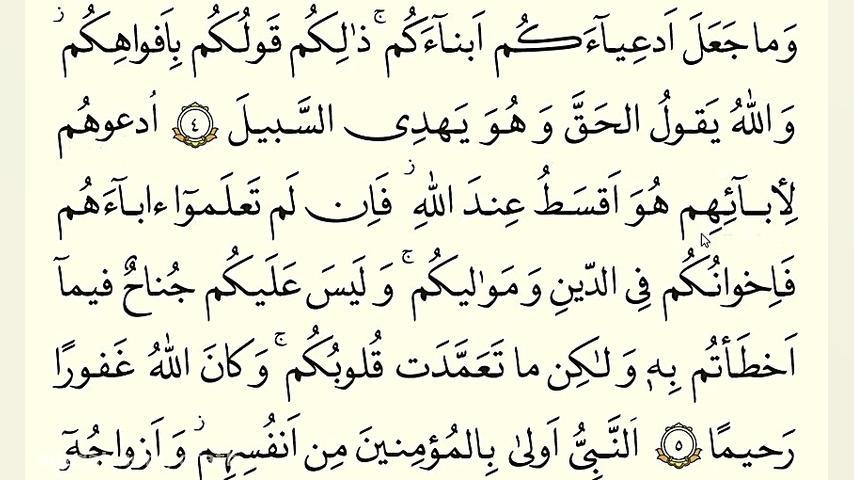 وَ ما جَعَلَ اَدعِيآءَكُم اَبنآءَكُم ۚ ذٰلِكُم قَولُكُم بِاَفواهِكُم ۖ
وَ اللهُ يَقولُ الحَقَّ وَ هُوَ يَهدِى السَّبيلَ ٤ اُدعوهُم
لِأبآئِهِم هُوَ اَقسَطُ عِندَ اللهِ ۚ فَاِن لَم تَعلَموٓا ءابآءَهُم
فَاِخوانُكُم فِى الدّينِ وَ مَوٰليكُم ۚ وَ لَيسَ عَلَيكُم جُناحٌ فيمآ
اَخطَأتُم بِهٖ وَ لٰكِن ما تَعَمَّدَت قُلوبُكُم ۚ وَ كانَ اللهُ غَفورًا
رَحيمًا ٥ اَلنَّبِىُّ اَولىٰ بِالمُؤمِنينَ مِن اَنفُسِهِم ۖ وَ اَزواجُهُٓ